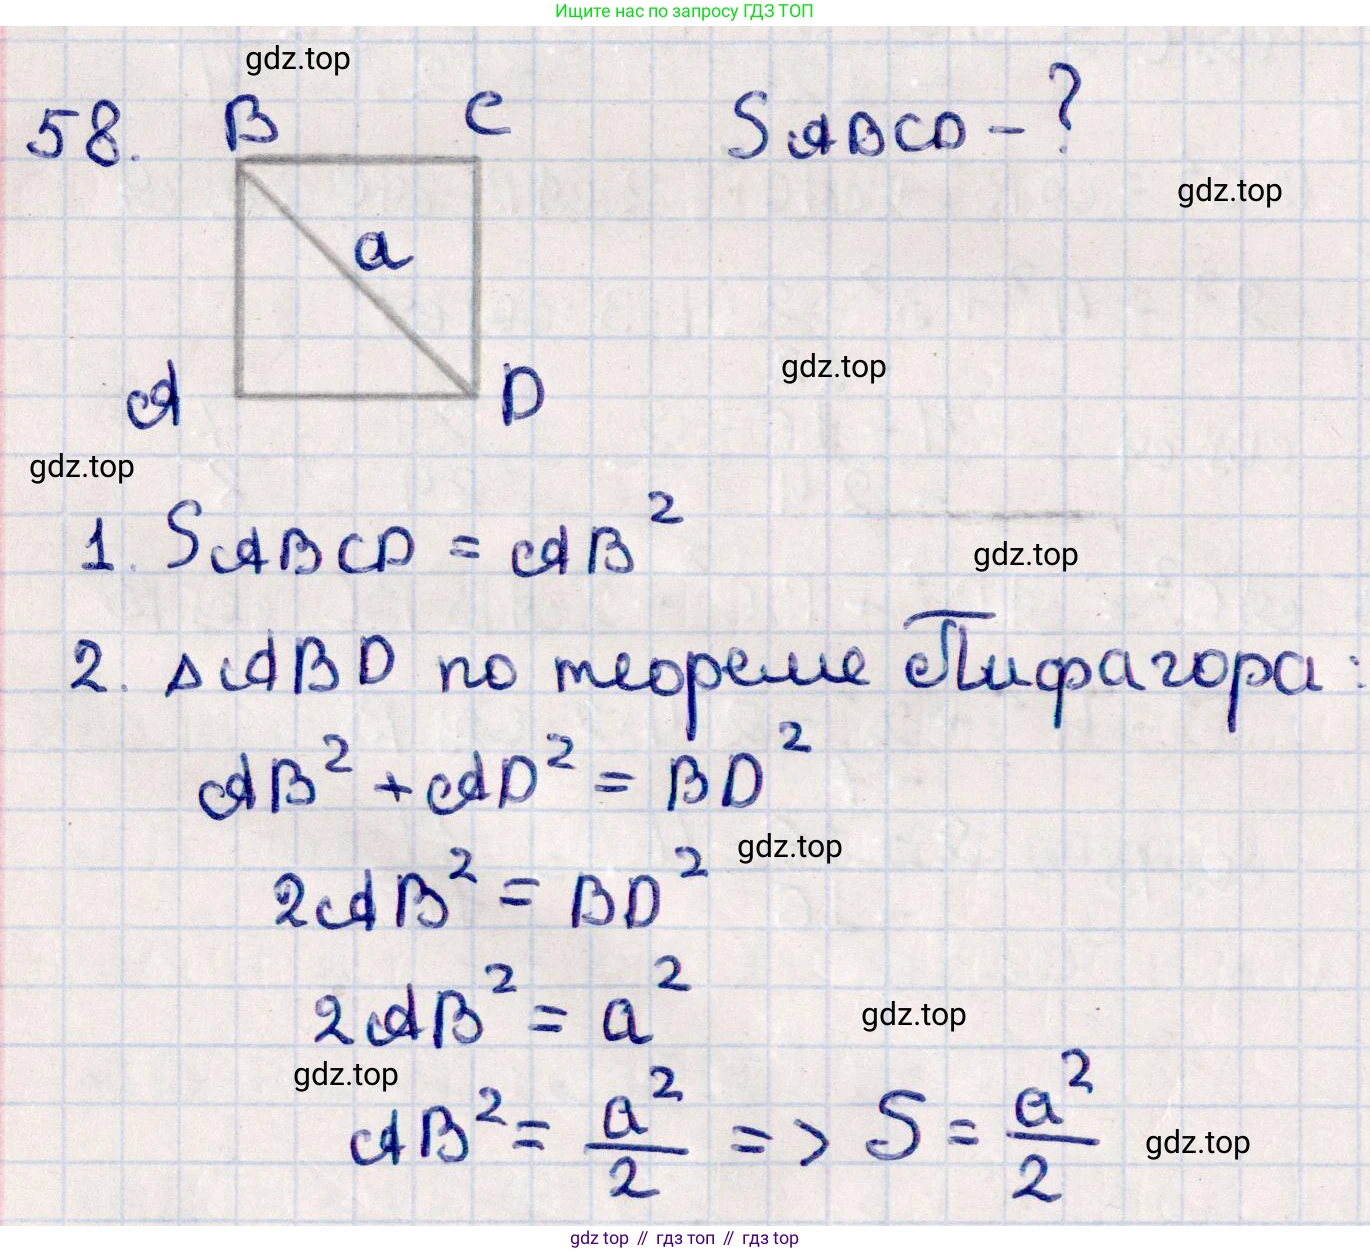 Ищите нас по запросу ГДЗ ТОП
gdz.top
58. B C S ABCD - ?
gdz.top
a
gdz.top
A D
gdz.top
1. S ABCD = AB²
gdz.top
2. △ABD по теореме Пифагора:
AB² + AD² = BD²
gdz.top
2AB² = BD²
2AB² = a²
gdz.top
gdz.top
AB² = a²/2 => S = a²/2
gdz.top
gdz top // гдз топ // гдз top